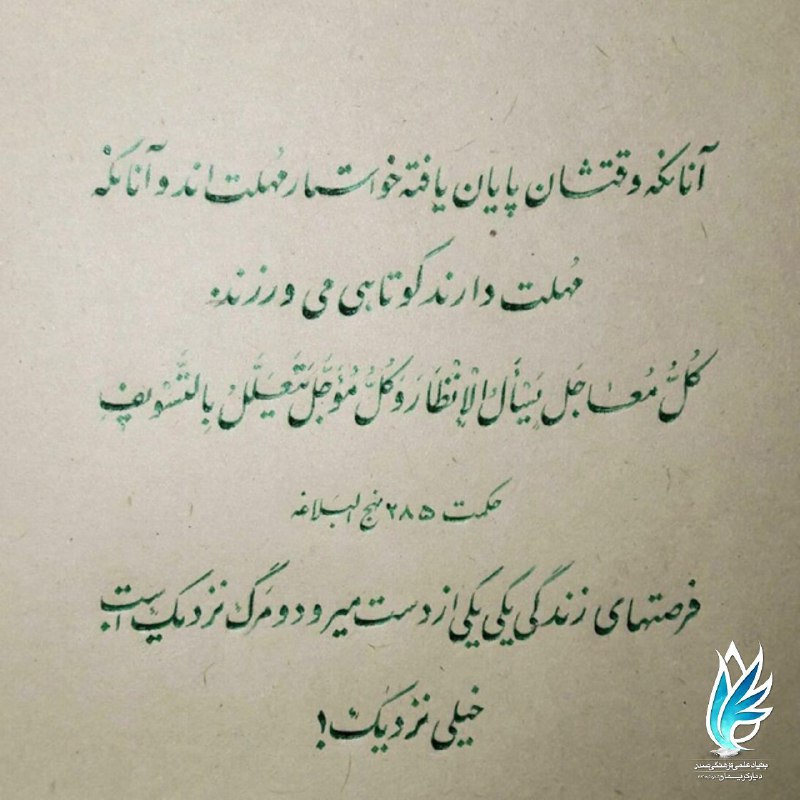 آنانکه وقتشان پایان یافته خواستار مُهلت اند و آنانکه
مُهلت دارند کوتاهی می ورزند.
کُلُّ مُعَاجَلٍ یَسْأَلُ الْإِنْظَارَ وَ کُلُّ مُؤَجَّلٍ یَتَعَلَّلُ بِالتَّسْوِیفِ
حکمت ۲۸۵ نهج البَلاغه
فرصتهای زندگی یکی یکی از دست میرود و مَرگ نزدیک است
خیلی نزدیک!
بنیاد علمی فرهنگی